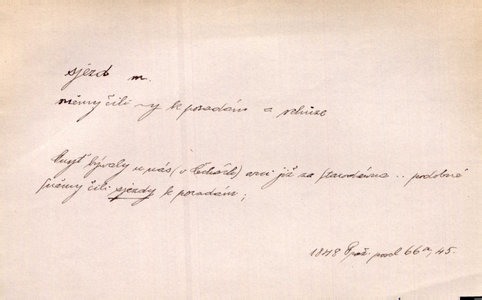 sjezd m.
sněmy čili ~y k poradám a schůze
bývaly u nás (v Čechách) arci již za starodávna .. podobné
sněmy čili sjezdy k poradám;
1848 Praž. posel 66a, 45.